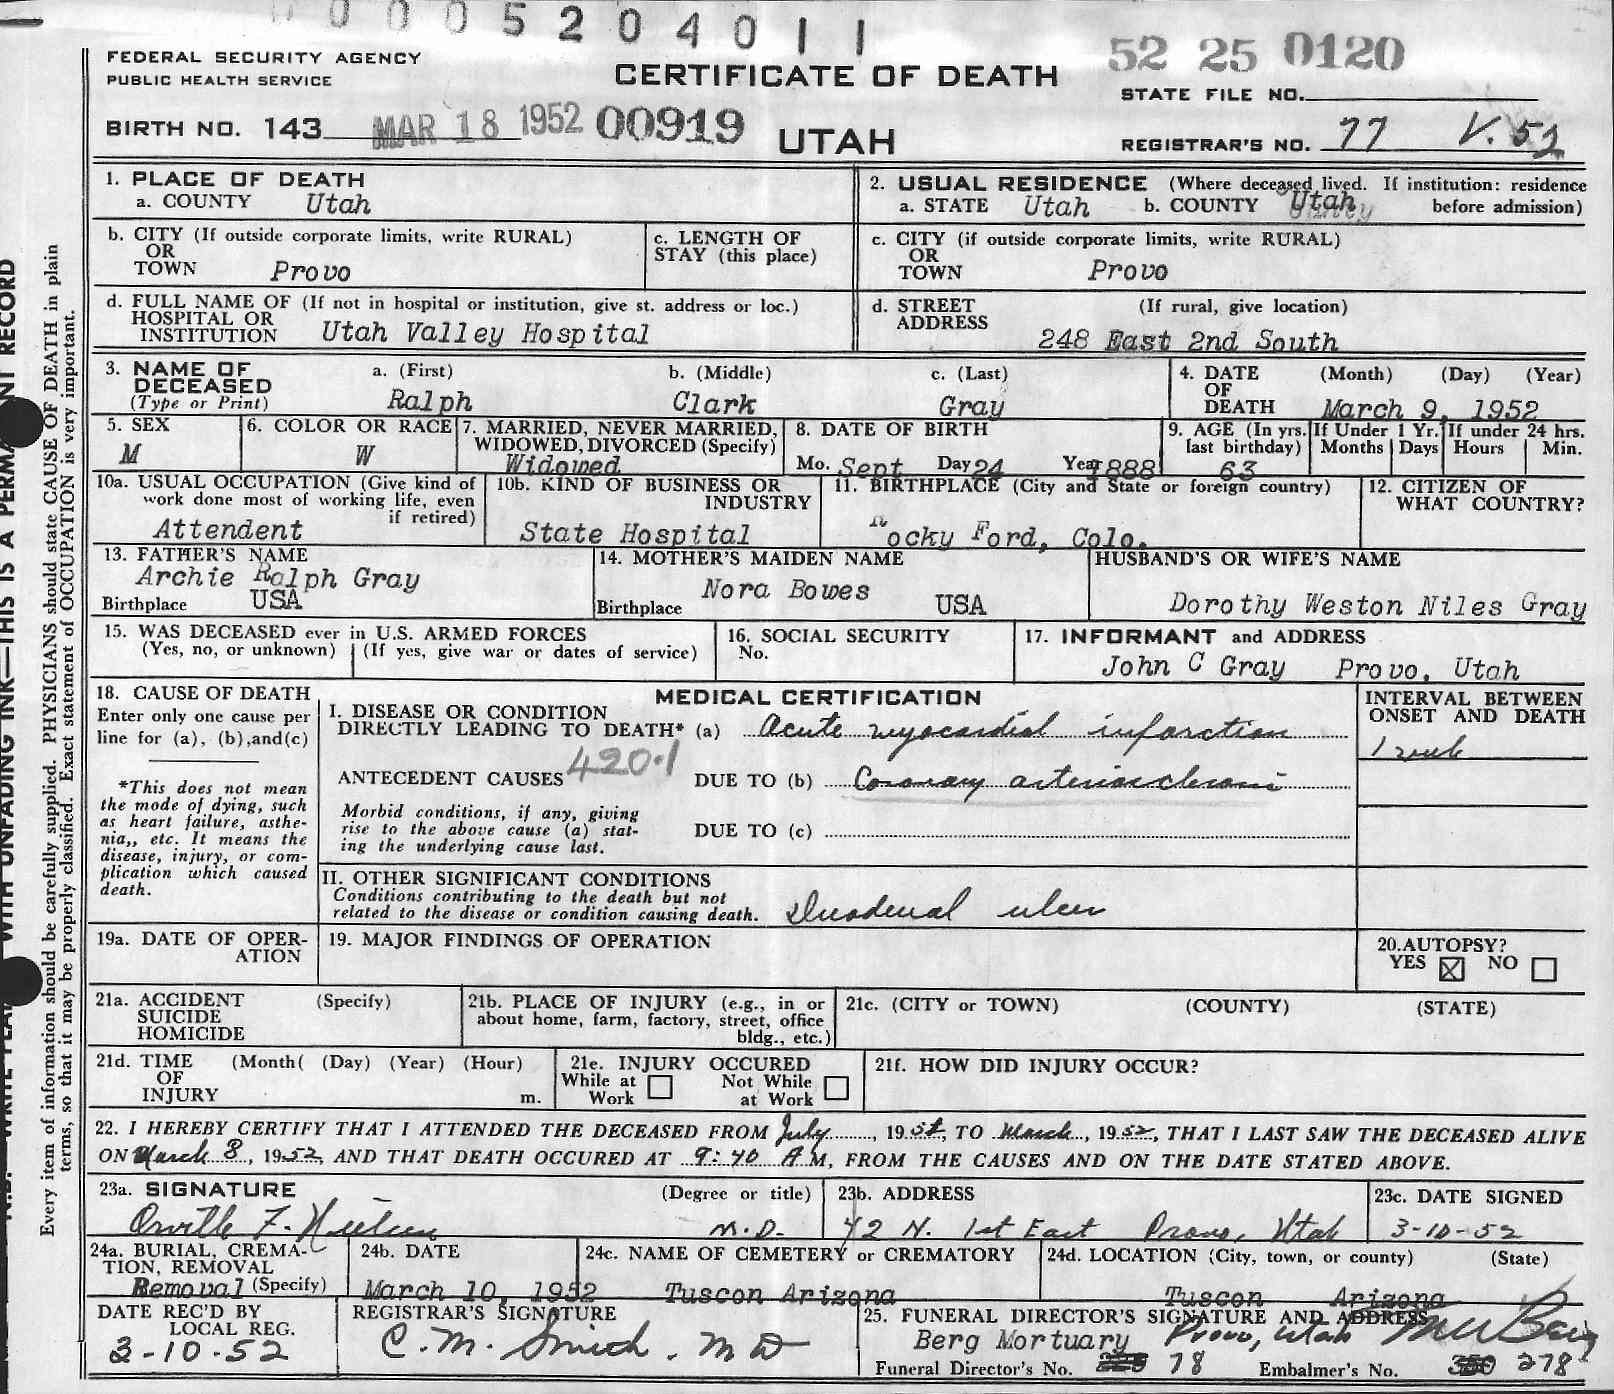 0 0 0 5 2 0 4 0 1 1
FEDERAL SECURITY AGENCY
PUBLIC HEALTH SERVICE
CERTIFICATE OF DEATH
52 25 0120
STATE FILE NO.
BIRTH NO. 143 MAR 18 1952 00919 UTAH
REGISTRAR'S NO. 77 V. 52
1. PLACE OF DEATH
a. COUNTY Utah
2. USUAL RESIDENCE (Where deceased lived. If institution: residence
a. STATE Utah b. COUNTY Utah before admission)
b. CITY (If outside corporate limits, write RURAL)
OR
TOWN Provo
c. LENGTH OF
STAY (this place)
c. CITY (if outside corporate limits, write RURAL)
OR
TOWN Provo
d. FULL NAME OF (If not in hospital or institution, give st. address or loc.)
HOSPITAL OR
INSTITUTION Utah Valley Hospital
d. STREET (If rural, give location)
ADDRESS
248 East 2nd South
3. NAME OF
DECEASED
(Type or Print)
a. (First) b. (Middle) c. (Last)
Ralph Clark Gray
4. DATE (Month) (Day) (Year)
OF
DEATH March 9, 1952
5. SEX
M
6. COLOR OR RACE
W
7. MARRIED, NEVER MARRIED,
WIDOWED, DIVORCED (Specify)
Widowed
8. DATE OF BIRTH
Mo. Sept Day 24 Year 1888
9. AGE (In yrs.
last birthday)
63
If Under 1 Yr.
Months Days
If under 24 hrs.
Hours Min.
10a. USUAL OCCUPATION (Give kind of
work done most of working life, even
if retired)
Attendent
10b. KIND OF BUSINESS OR
INDUSTRY
State Hospital
11. BIRTHPLACE (City and State or foreign country)
Rocky Ford, Colo.
12. CITIZEN OF
WHAT COUNTRY?
13. FATHER'S NAME
Archie Ralph Gray
Birthplace USA
14. MOTHER'S MAIDEN NAME
Nora Bowes
Birthplace USA
HUSBAND'S OR WIFE'S NAME
Dorothy Weston Niles Gray
15. WAS DECEASED ever in U.S. ARMED FORCES
(Yes, no, or unknown) (If yes, give war or dates of service)
16. SOCIAL SECURITY
No.
17. INFORMANT and ADDRESS
John C Gray Provo, Utah
18. CAUSE OF DEATH
Enter only one cause per
line for (a), (b),and(c)
*This does not mean
the mode of dying, such
as heart failure, asthe-
nia,, etc. It means the
disease, injury, or com-
plication which caused
death.
MEDICAL CERTIFICATION
I. DISEASE OR CONDITION
DIRECTLY LEADING TO DEATH* (a) Acute myocardial infarction
ANTECEDENT CAUSES 420.1 DUE TO (b) Coronary arteriosclerosis
Morbid conditions, if any, giving
rise to the above cause (a) stat-
ing the underlying cause last.
DUE TO (c)
INTERVAL BETWEEN
ONSET AND DEATH
1 week
II. OTHER SIGNIFICANT CONDITIONS
Conditions contributing to the death but not
related to the disease or condition causing death. Duodenal ulcer
19a. DATE OF OPER-
ATION
19. MAJOR FINDINGS OF OPERATION
20.AUTOPSY?
YES ☒ NO ☐
21a. ACCIDENT (Specify)
SUICIDE
HOMICIDE
21b. PLACE OF INJURY (e.g., in or
about home, farm, factory, street, office
bldg., etc.)
21c. (CITY or TOWN) (COUNTY) (STATE)
21d. TIME (Month( (Day) (Year) (Hour)
OF
INJURY m.
21e. INJURY OCCURED
While at Work ☐ Not While at Work ☐
21f. HOW DID INJURY OCCUR?
22. I HEREBY CERTIFY THAT I ATTENDED THE DECEASED FROM July, 19 TO March, 1952, THAT I LAST SAW THE DECEASED ALIVE
ON March 8, 1952, AND THAT DEATH OCCURED AT 9:40 A M, FROM THE CAUSES AND ON THE DATE STATED ABOVE.
23a. SIGNATURE (Degree or title)
Orville F. Nielsen M.D.
23b. ADDRESS
42 N. 1st East Provo, Utah
23c. DATE SIGNED
3-10-52
24a. BURIAL, CREMA-
TION, REMOVAL
Removal (Specify)
24b. DATE
March 10, 1952
24c. NAME OF CEMETERY or CREMATORY
Tuscon Arizona
24d. LOCATION (City, town, or county) (State)
Tuscon Arizona
DATE REC'D BY
LOCAL REG.
3-10-52
REGISTRAR'S SIGNATURE
C. M. Smith, M D
25. FUNERAL DIRECTOR'S SIGNATURE AND ADDRESS
Berg Mortuary Provo, Utah Berg
Funeral Director's No. 78 Embalmer's No. 278
Every item of information should be carefully supplied. PHYSICIANS should state CAUSE OF DEATH in plain
terms, so that it may be properly classified. Exact statement of OCCUPATION is very important.
WITH UNFADING INK—THIS IS A RECORD